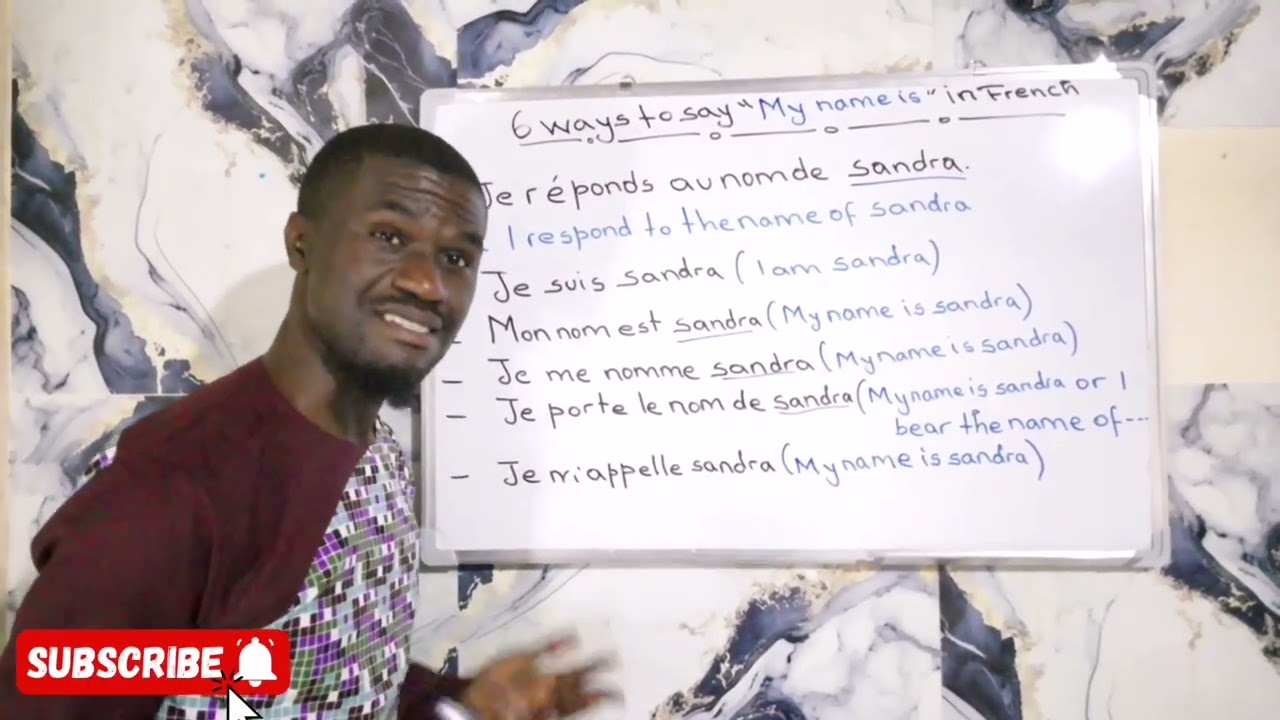 6 ways to say "My name is" in French
Je réponds au nom de sandra.
- I respond to the name of sandra
Je suis sandra (I am sandra)
- Mon nom est sandra (My name is sandra)
- Je me nomme sandra (My name is sandra)
- Je porte le nom de sandra (My name is sandra or I
bear the name of ---
- Je m'appelle sandra (My name is sandra)
SUBSCRIBE